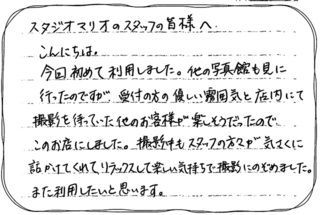 スタジオマリオのスタッフの皆様へ
こんにちは。
今回初めて利用しました。他の写真館も見に
行ったのですが、受付の方の優しい雰囲気と店内にて
撮影を待っていた他のお客様が楽しそうだったので
このお店にしました。撮影中もスタッフの方々が気さくに
話かけてくれてリラックスして楽しい気持ちで撮影にのぞめました。
また利用したいと思います。